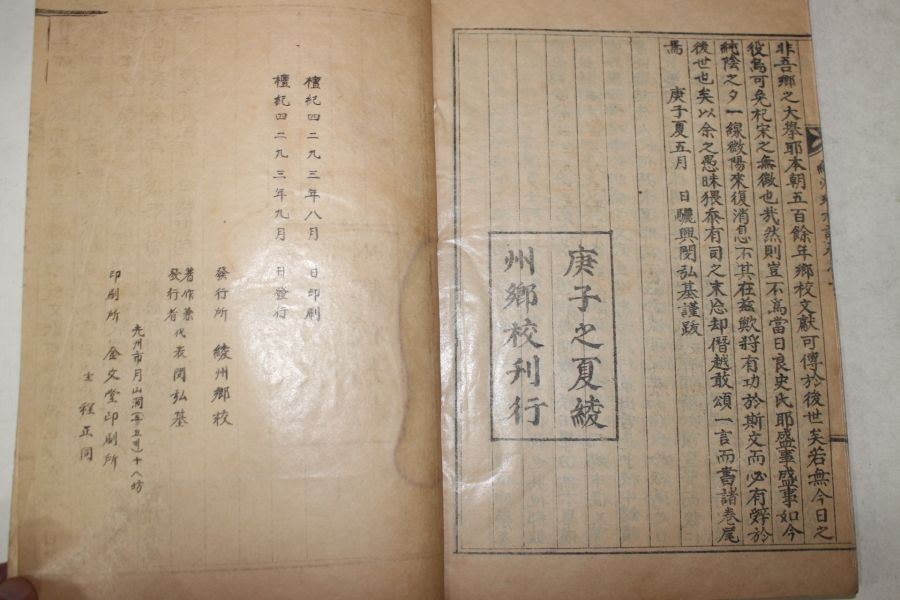 非吾鄉之大擧耶本朝五百餘年鄉校文獻可傳於後世矣若無今日之
役烏可免杞宋之無徵也哉然則豈不爲當日良史氏耶盛事盛事如今
純陰之夕一線微陽來復消息不其在玆歟將有功於斯文而必有辭於
後世也矣以余之愚昧猥忝有司之末忘却僭越敢頌一言而書諸卷尾
焉
庚子夏五月 日驪興閔弘基謹跋
庚子之夏綾
州鄉校刊行
檀紀四二九三年八月 日印刷
檀紀四二九三年九月 日發行
發行所 綾州鄉校
著作兼
發行者 代表閔弘基
光州市月山洞
印刷所 金文堂印刷所
主 程正同